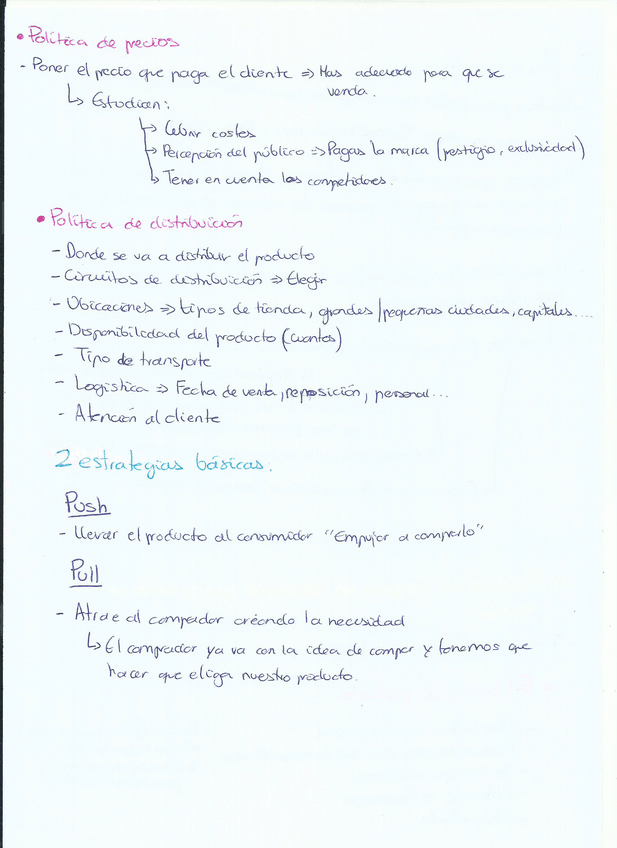 • Política de precios
- Poner el precio que paga el cliente => Mas adecuado para que se
venda.
↳ Estudian:
↳ Cubrir costes
↳ Percepción del público => Pagas la marca (prestigio, exclusividad)
↳ Tener en cuenta los competidores.
• Política de distribución
- Donde se va a distribuir el producto
- Circuitos de distribución => Elegir
- Ubicaciones => tipos de tienda, grandes/pequeñas ciudades, capitales....
- Disponibilidad del producto (cuantos)
- Tipo de transporte
- Logística => Fecha de venta, reposición, personal...
- Atención al cliente
2 estrategias básicas:
Push
- Llevar el producto al consumidor "Empujar a comprarlo"
Pull
- Atrae al comprador creando la necesidad
↳ El comprador ya va con la idea de comprar y tenemos que
hacer que eliga nuestro producto.